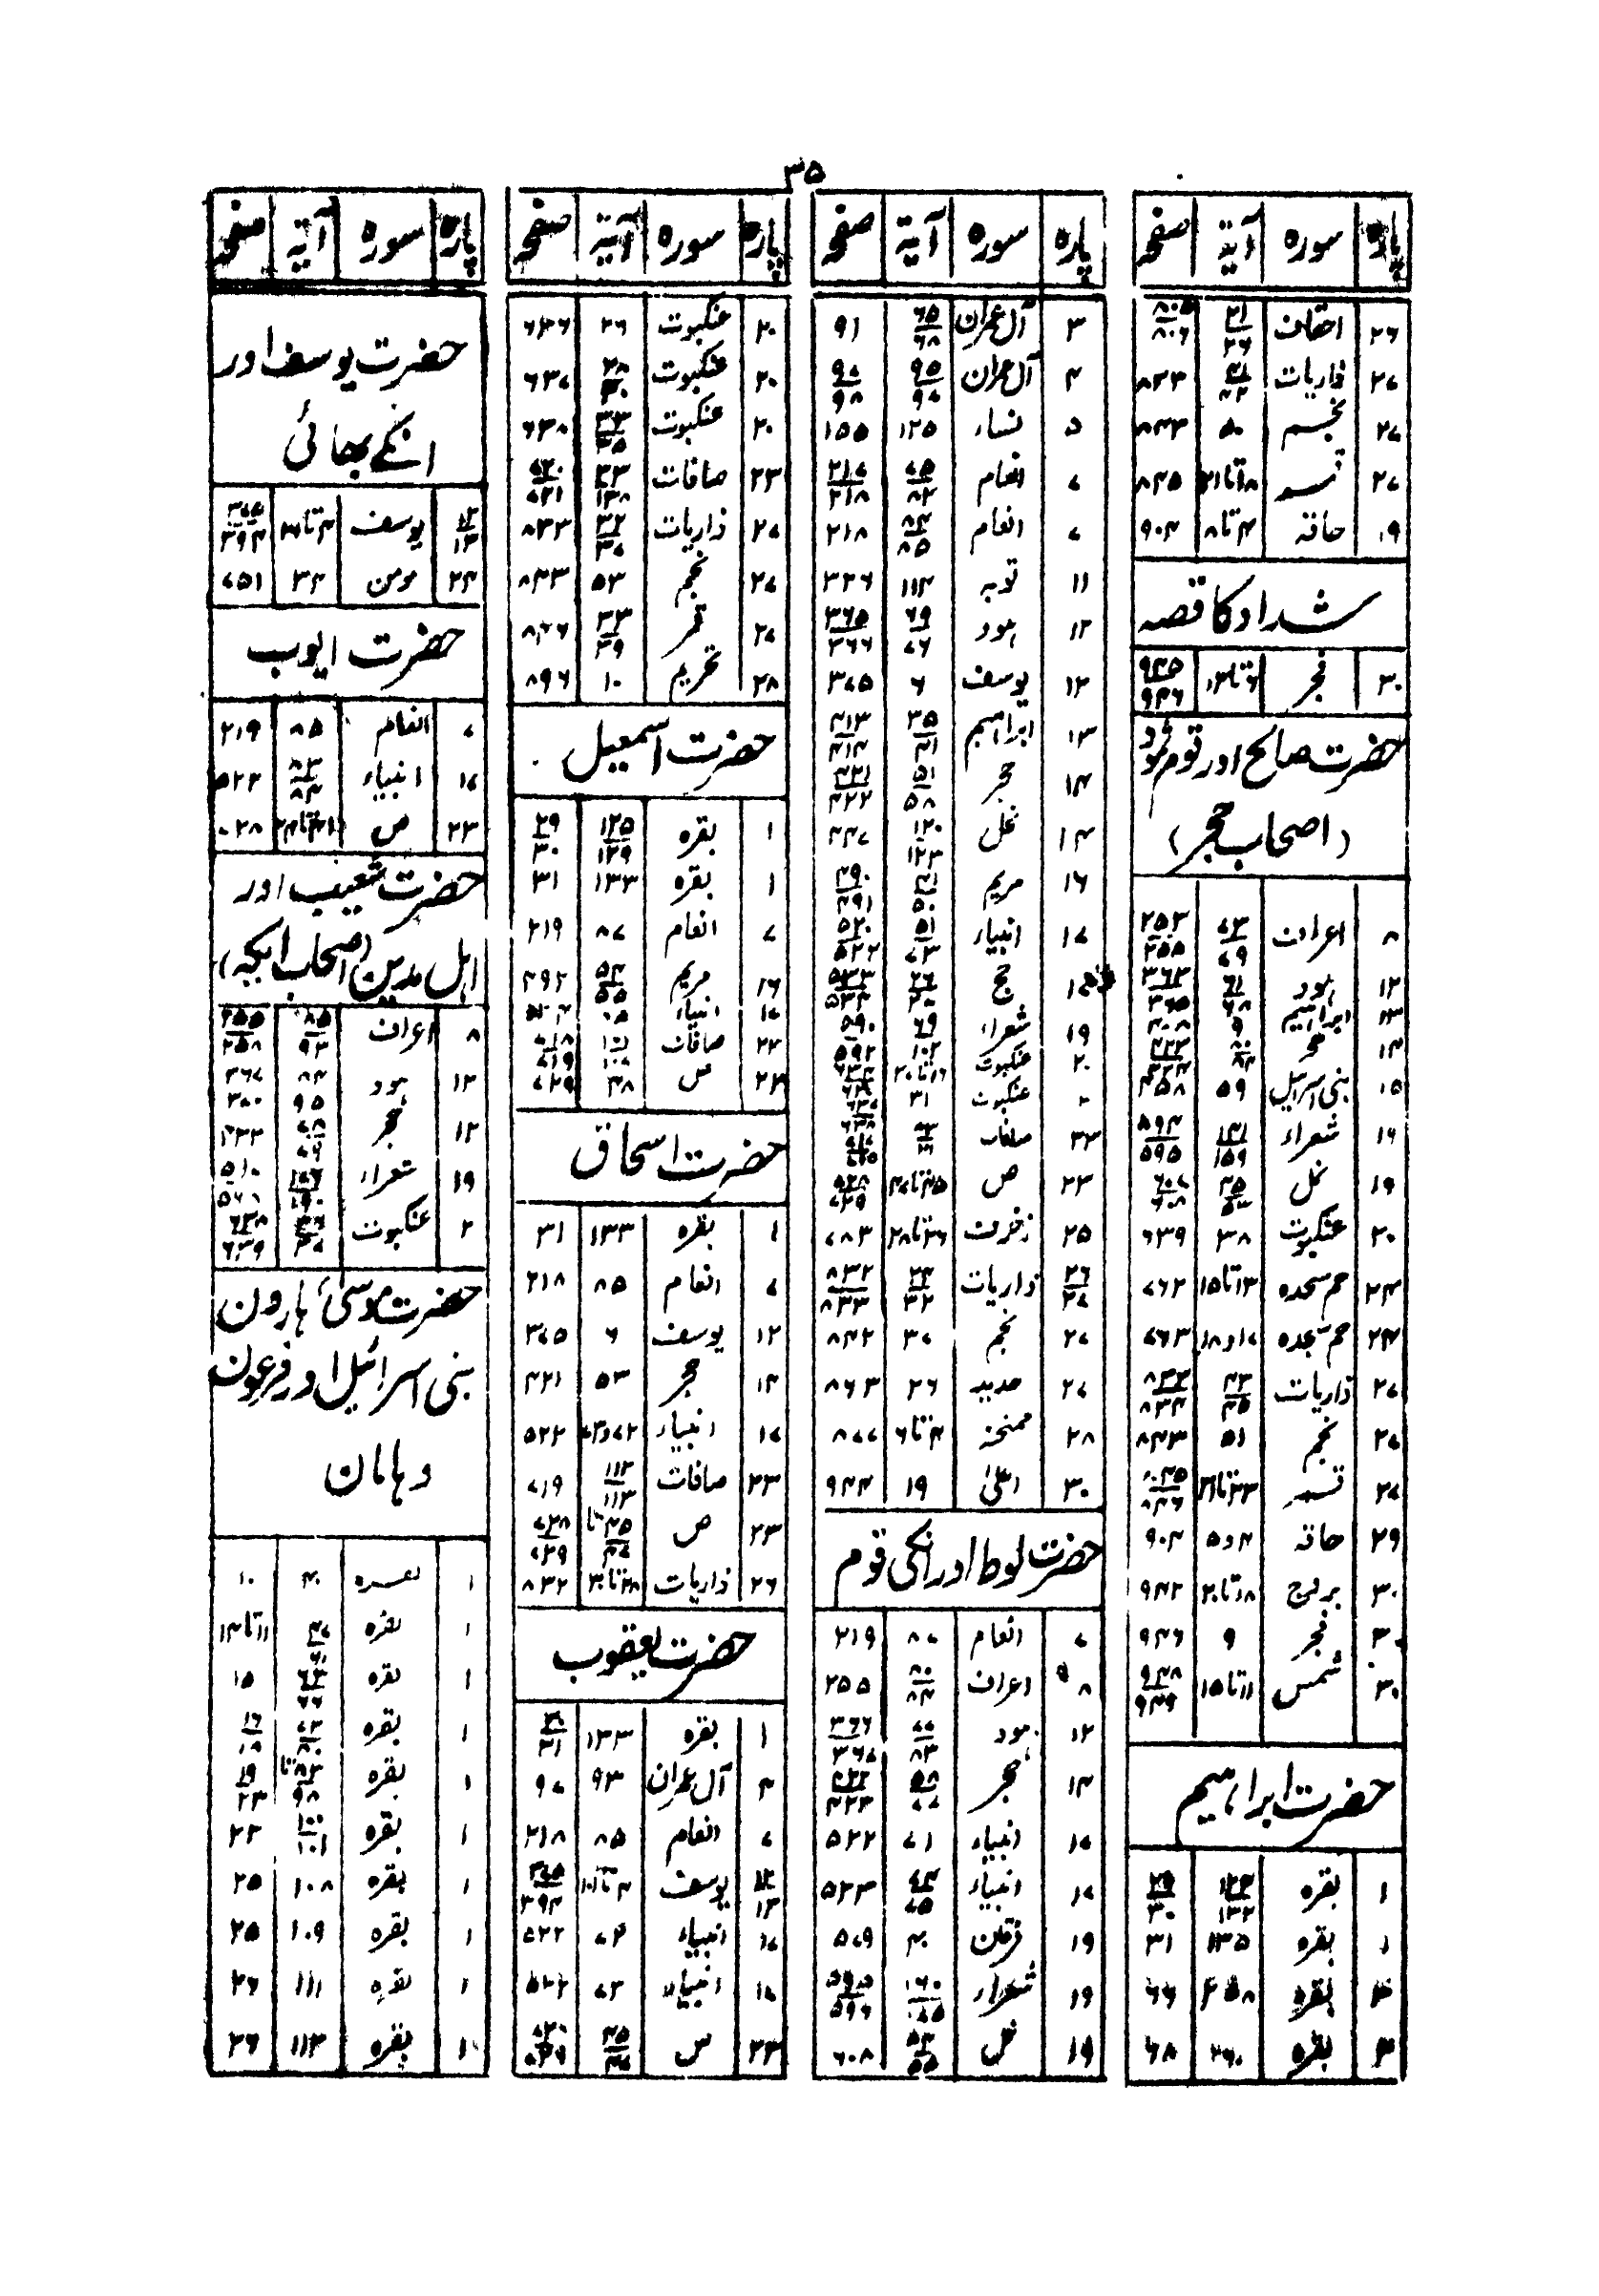 ۳۵
پارہ سورہ آیۃ صفحہ
۲۶ احقاف ۲۱/۲۶ ۸۰۵/۸۰۶
۲۷ ذاریات ۸۳۳
۲۷ نجم ۵۰ ۸۴۳
۲۷ قمر ۱۸تا۲۱ ۸۴۵
حاقہ ۴تا۸ ۹۰۴
شداد کا قصہ
۳۰ فجر ۶تا۱۳ ۹۴۵/۹۴۶
حضرت صالح اور قوم ثمود
(اصحاب حجر)
۸ اعراف ۷۳/۷۹ ۲۵۳/۲۵۵
۱۲ ہود ۶۱/۶۸ ۳۶۴/۳۶۵
۱۳ ابراہیم ۹
۱۴ حجر ۸۰/۸۴
۱۵ بنی اسرائیل ۵۹ ۴۵۸
۱۹ شعراء ۱۴۱/۱۵۹ ۵۹۴/۵۹۵
۱۹ نمل ۴۵ ۶۰۷/۶۰۸
۲۰ عنکبوت ۳۸ ۶۳۹
۲۴ حم سجدہ ۱۳تا۱۵ ۷۶۲
۲۴ حم سجدہ ۱۷و۱۸ ۷۶۳
۲۷ ذاریات ۴۳/۴۵ ۸۳۳/۸۳۴
۲۷ نجم ۵۱ ۸۴۳
۲۷ قمر ۲۳تا۳۱ ۸۴۵/۸۴۶
۲۹ حاقہ ۴و۵ ۹۰۴
۳۰ بروج ۱۸تا۲۰ ۹۴۲
۳۰ فجر ۹ ۹۴۶
۳۰ شمس ۱۱تا۱۵ ۹۴۸/۹۴۹
حضرت ابراہیم
۱ بقرہ ۱۲۴/۱۳۲ ۲۹/۳۰
۱ بقرہ ۱۳۵ ۳۱
۳ بقرہ ۲۵۸ ۶۶
۳ بقرہ ۲۶۰ ۶۸
پارہ سورہ آیۃ صفحہ
۳ آل عمران ۶۵/۶۸ ۹۱
۴ آل عمران ۹۵/۹۷ ۹۷/۹۸
۵ نساء ۱۲۵ ۱۵۵
۷ انعام ۷۵/۸۲ ۲۱۷/۲۱۸
۷ انعام ۸۴/۸۵ ۲۱۸
۱۱ توبہ ۱۱۴ ۳۲۶
۱۲ ہود ۶۹/۷۶ ۳۶۵/۳۶۶
۱۲ یوسف ۶ ۳۷۵
۱۳ ابراہیم ۳۵/۴۱ ۴۱۳/۴۱۴
۱۴ حجر ۵۱/۵۸ ۴۲۱/۴۲۲
۱۴ نحل ۱۲۰/۱۲۳ ۴۴۷
۱۶ مریم ۴۱/۵۰ ۴۹۰/۴۹۱
۱۷ انبیاء ۵۱/۷۳ ۵۲۰/۵۲۲
۱۷ حج ۲۶ ۵۳۳/۵۳۴
۱۹ شعراء ۶۹/۱۰۲ ۵۹۰/۵۹۲
۲۰ عنکبوت ۱۶تا۲۰
عنکبوت ۳۱
۲۳ صافات
۲۳ ص ۴۵تا۴۷ ۷۲۸/۷۲۹
۲۵ زخرف ۲۶تا۲۸ ۷۸۳
۲۶/۲۷ ذاریات ۲۴/۳۲ ۸۳۲/۸۳۳
۲۷ نجم ۳۷ ۸۴۲
۲۷ حدید ۲۶ ۸۶۳
۲۸ ممتحنہ ۴تا۶ ۸۷۷
۳۰ اعلیٰ ۱۹ ۹۴۴
حضرت لوط اور انکی قوم
۷ انعام ۸۷ ۲۱۹
۸ اعراف ۸۰/۸۴ ۲۵۵
۱۲ ہود ۷۷/۸۳ ۳۶۶/۳۶۷
۱۴ حجر ۵۸/۷۷ ۴۲۲/۴۲۳
۱۷ انبیاء ۷۱ ۵۲۲
۱۷ انبیاء ۷۴/۷۵ ۵۲۳
۱۹ فرقان ۴۰ ۵۷۹
۱۹ شعراء ۱۶۰/۱۷۵ ۵۹۵/۵۹۶
۱۹ نمل ۵۴/۵۵ ۶۰۸
پارہ سورہ آیۃ صفحہ
۲۰ عنکبوت ۲۶ ۶۳۶
۲۰ عنکبوت ۲۸/۳۰ ۶۳۷
۲۰ عنکبوت ۳۳/۳۵ ۶۳۸
۲۳ صافات ۱۳۳/۱۳۸ ۷۲۰/۷۲۱
۲۷ ذاریات ۳۲/۳۷ ۸۳۳
۲۷ نجم ۵۳ ۸۴۳
۲۷ قمر ۳۳/۳۹ ۸۴۶
۲۸ تحریم ۱۰ ۸۹۶
حضرت اسمعیل
۱ بقرہ ۱۲۵/۱۲۹ ۲۹/۳۰
۱ بقرہ ۱۳۳ ۳۱
۷ انعام ۸۷ ۲۱۹
۱۶ مریم ۵۴/۵۵ ۴۹۲
۱۷ انبیاء ۸۵
۲۳ صافات ۷۱۸/۷۱۹
۲۳ ص ۴۸ ۷۲۹
حضرت اسحاق
۱ بقرہ ۱۳۳ ۳۱
۷ انعام ۸۵ ۲۱۸
۱۲ یوسف ۶ ۳۷۵
۱۴ حجر ۵۳ ۴۲۱
۱۷ انبیاء ۷۲و۷۳ ۵۲۲
۲۳ صافات ۱۱۲/۱۱۳ ۷۱۹
۲۳ ص ۴۵تا۴۷ ۷۲۸/۷۲۹
۲۶ ذاریات ۲۸تا۳۰ ۸۳۲
حضرت یعقوب
۱ بقرہ ۱۳۳ ۳۱
۴ آل عمران ۹۳ ۹۷
۷ انعام ۸۵ ۲۱۸
۱۲/۱۳ یوسف ۴تا۱۰۱ ۳۷۵/۳۹۴
۱۷ انبیاء ۷۲ ۵۲۲
۱۷ انبیاء ۷۳ ۵۲۲
۲۳ ص ۴۵/۴۷
پارہ سورہ آیۃ صفحہ
حضرت یوسف اور
انکے بھائی
۱۲/۱۳ یوسف ۳۷۵/۳۹۴
۲۴ مومن ۳۴ ۷۵۱
حضرت ایوب
۷ انعام ۸۵ ۲۱۹
۱۷ انبیاء ۸۳/۸۴ ۵۲۳
۲۳ ص ۴۱تا۴۴ ۷۲۸
حضرت شعیب اور
اہل مدین (اصحاب ایکہ)
۸ اعراف ۸۵/۹۳ ۲۵۵/۲۵۸
۱۲ ہود ۸۴/۹۵ ۳۶۷
حجر ۷۸/۷۹ ۴۲۳
۱۹ شعراء ۱۷۶/۱۹۰
عنکبوت ۳۶/۳۷ ۶۳۸/۶۳۹
حضرت موسیٰ ہارون
بنی اسرائیل اور فرعون
وہامان
۱ بقرہ ۴۰ ۱۰
۱ بقرہ ۴۷/۶۱ ۱۱تا۱۴
۱ بقرہ ۶۳/۶۶ ۱۵
۱ بقرہ ۷۲/۸۰ ۱۶/۱۸
۱ بقرہ ۸۳تا۹۸ ۱۹/۲۳
۱ بقرہ ۱۰۰/۱۰۱ ۲۳
۱ بقرہ ۱۰۸ ۲۵
۱ بقرہ ۱۰۹ ۲۵
۱ بقرہ ۱۱۱ ۲۶
۱ بقرہ ۱۱۳ ۲۶